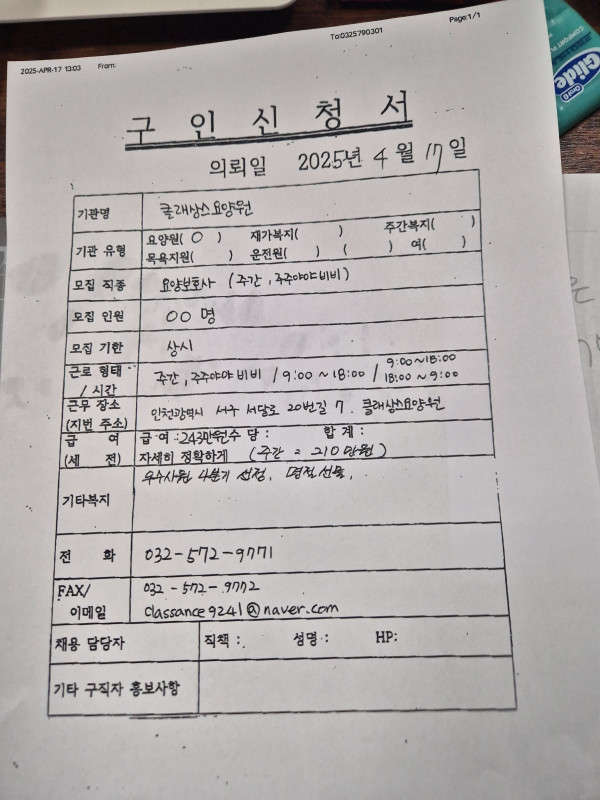 2025-APR-17 13:03 From: To:0325790301 Page:1/1
구 인 신 청 서
의뢰일 2025년 4 월 17 일
기관명 클래상스요양원
기관 유형 요양원( O ) 재가복지( ) 주간복지( )
목욕지원( ) 운전원( ) ( ) 여( )
모집 직종 요양보호사 (주간, 주주야야비비)
모집 인원 OO 명
모집 기한 상시
근로 형태 / 시간 주간, 주주야야비비 / 9:00 ~ 18:00 / 9:00 ~ 18:00
18:00 ~ 9:00
근무 장소 (지번 주소) 인천광역시 서구 서달로 20번길 7. 클래상스요양원
급 여 (세 전) 급 여 : 243만원 수 당 : 합 계 :
자세히 정확하게 (주간 = 210만원)
기타복지 우수사원 4분기 선정, 명절선물,
전 화 032-572-9771
FAX/ 이메일 032-572-9772
classance9241@naver.com
채용 담당자 직책 : 성명 : HP:
기타 구직자 홍보사항
Glide